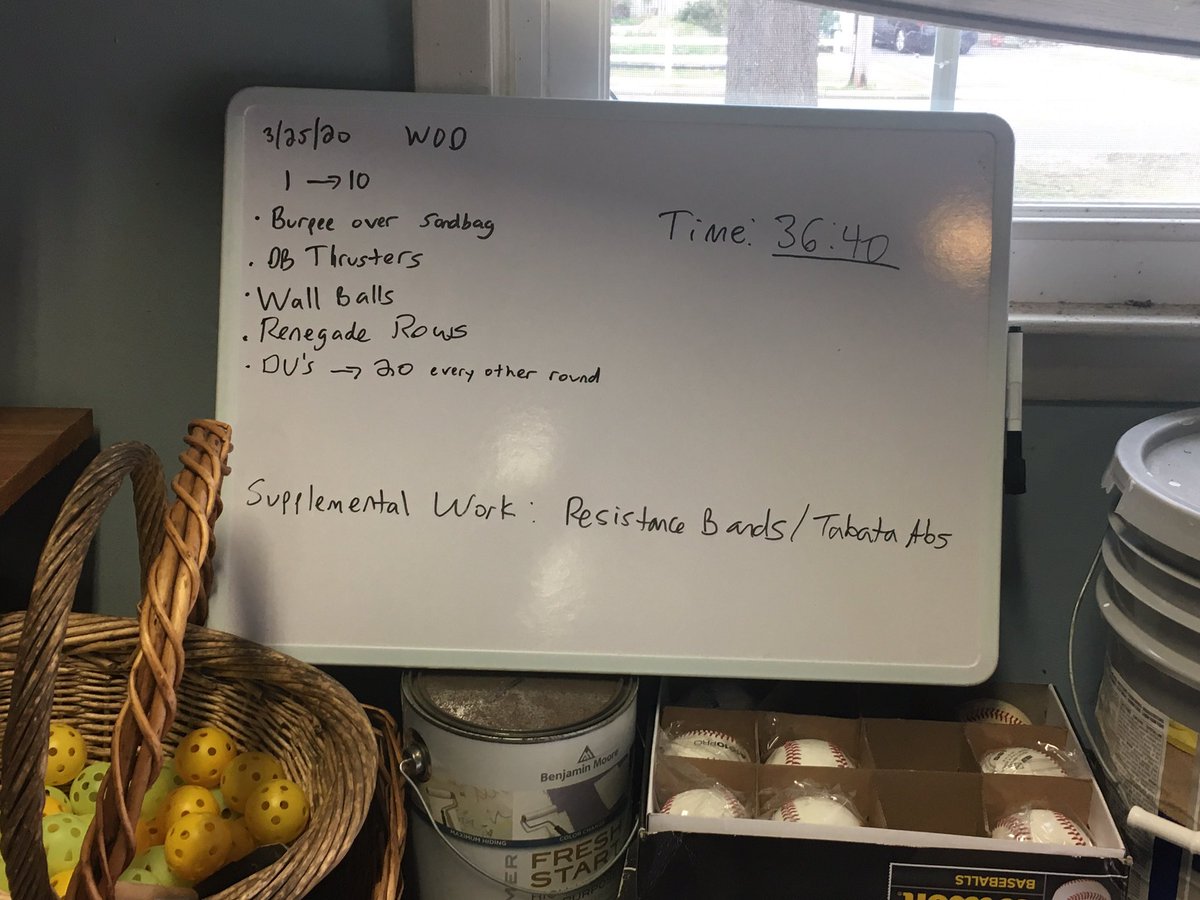 3/25/20 WOD
1 → 10
• Burpee over Sandbag
• DB Thrusters
• Wall Balls
• Renegade Rows
• DU's → 20 every other round
Time: 36:40
Supplemental Work: Resistance Bands/Tabata Abs
Benjamin Moore
MAXIMUM HIDING
FRESH
START
BASEBALLS